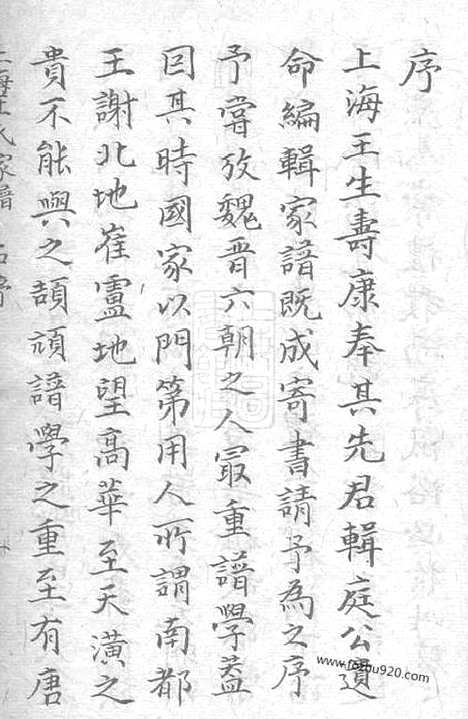 序
上海王生壽康奉其先君輯庭公遺
命編輯家譜既成寄書請予為之序
予嘗攷魏晋六朝之人冣重譜學葢
因其時國家以門第用人所謂南都
王謝北地崔盧地望髙華至天潢之
貴不能與之頡頏譜學之重至有唐
上海王氏家譜
www.fozhu920.com